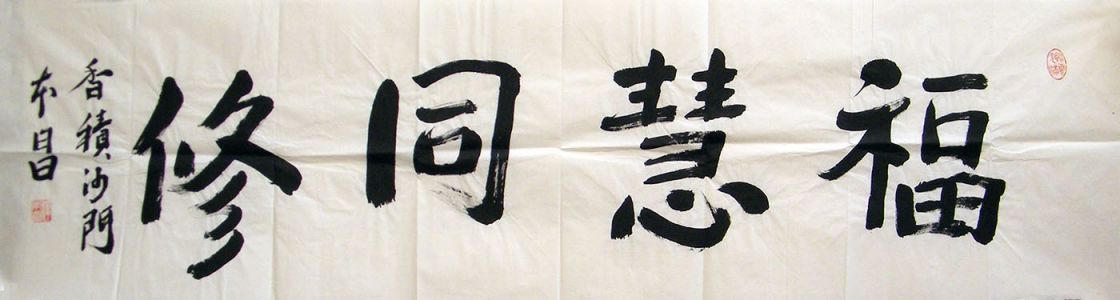 福慧同修
香積沙門
本昌